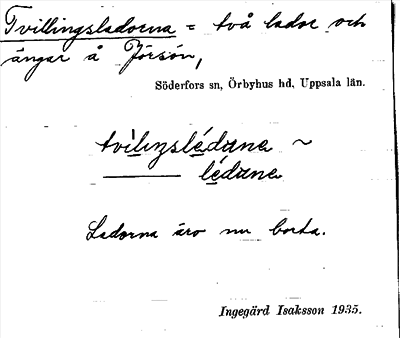 Tvillingsladorna = två lador och
ängar å Jörsön,
Söderfors sn, Örbyhus hd, Uppsala län.
~
Ladorna äro nu borta.
Ingegärd Isaksson 1935.